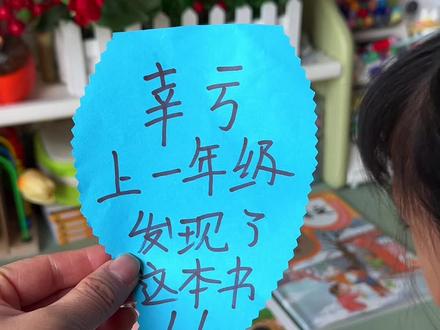 幸亏
上一年级
发现了
这本书
!!